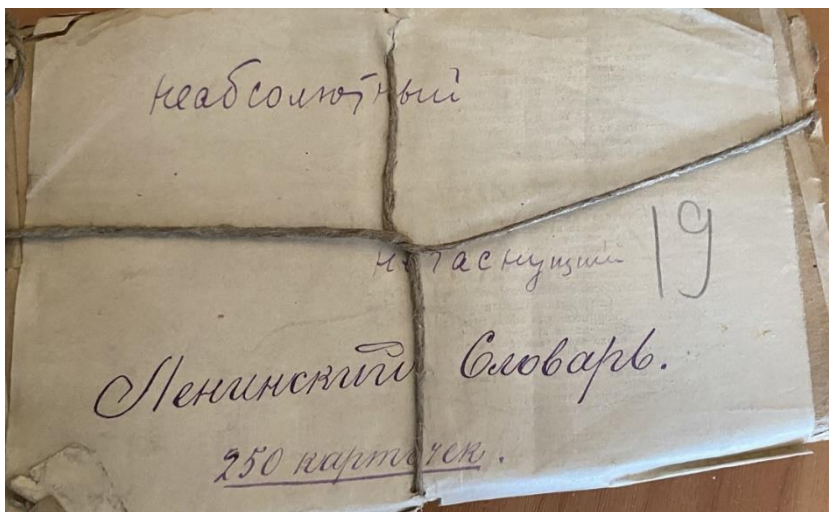 необсолютный
негаснущий
19
Ленинский Словарь.
250 карточек.